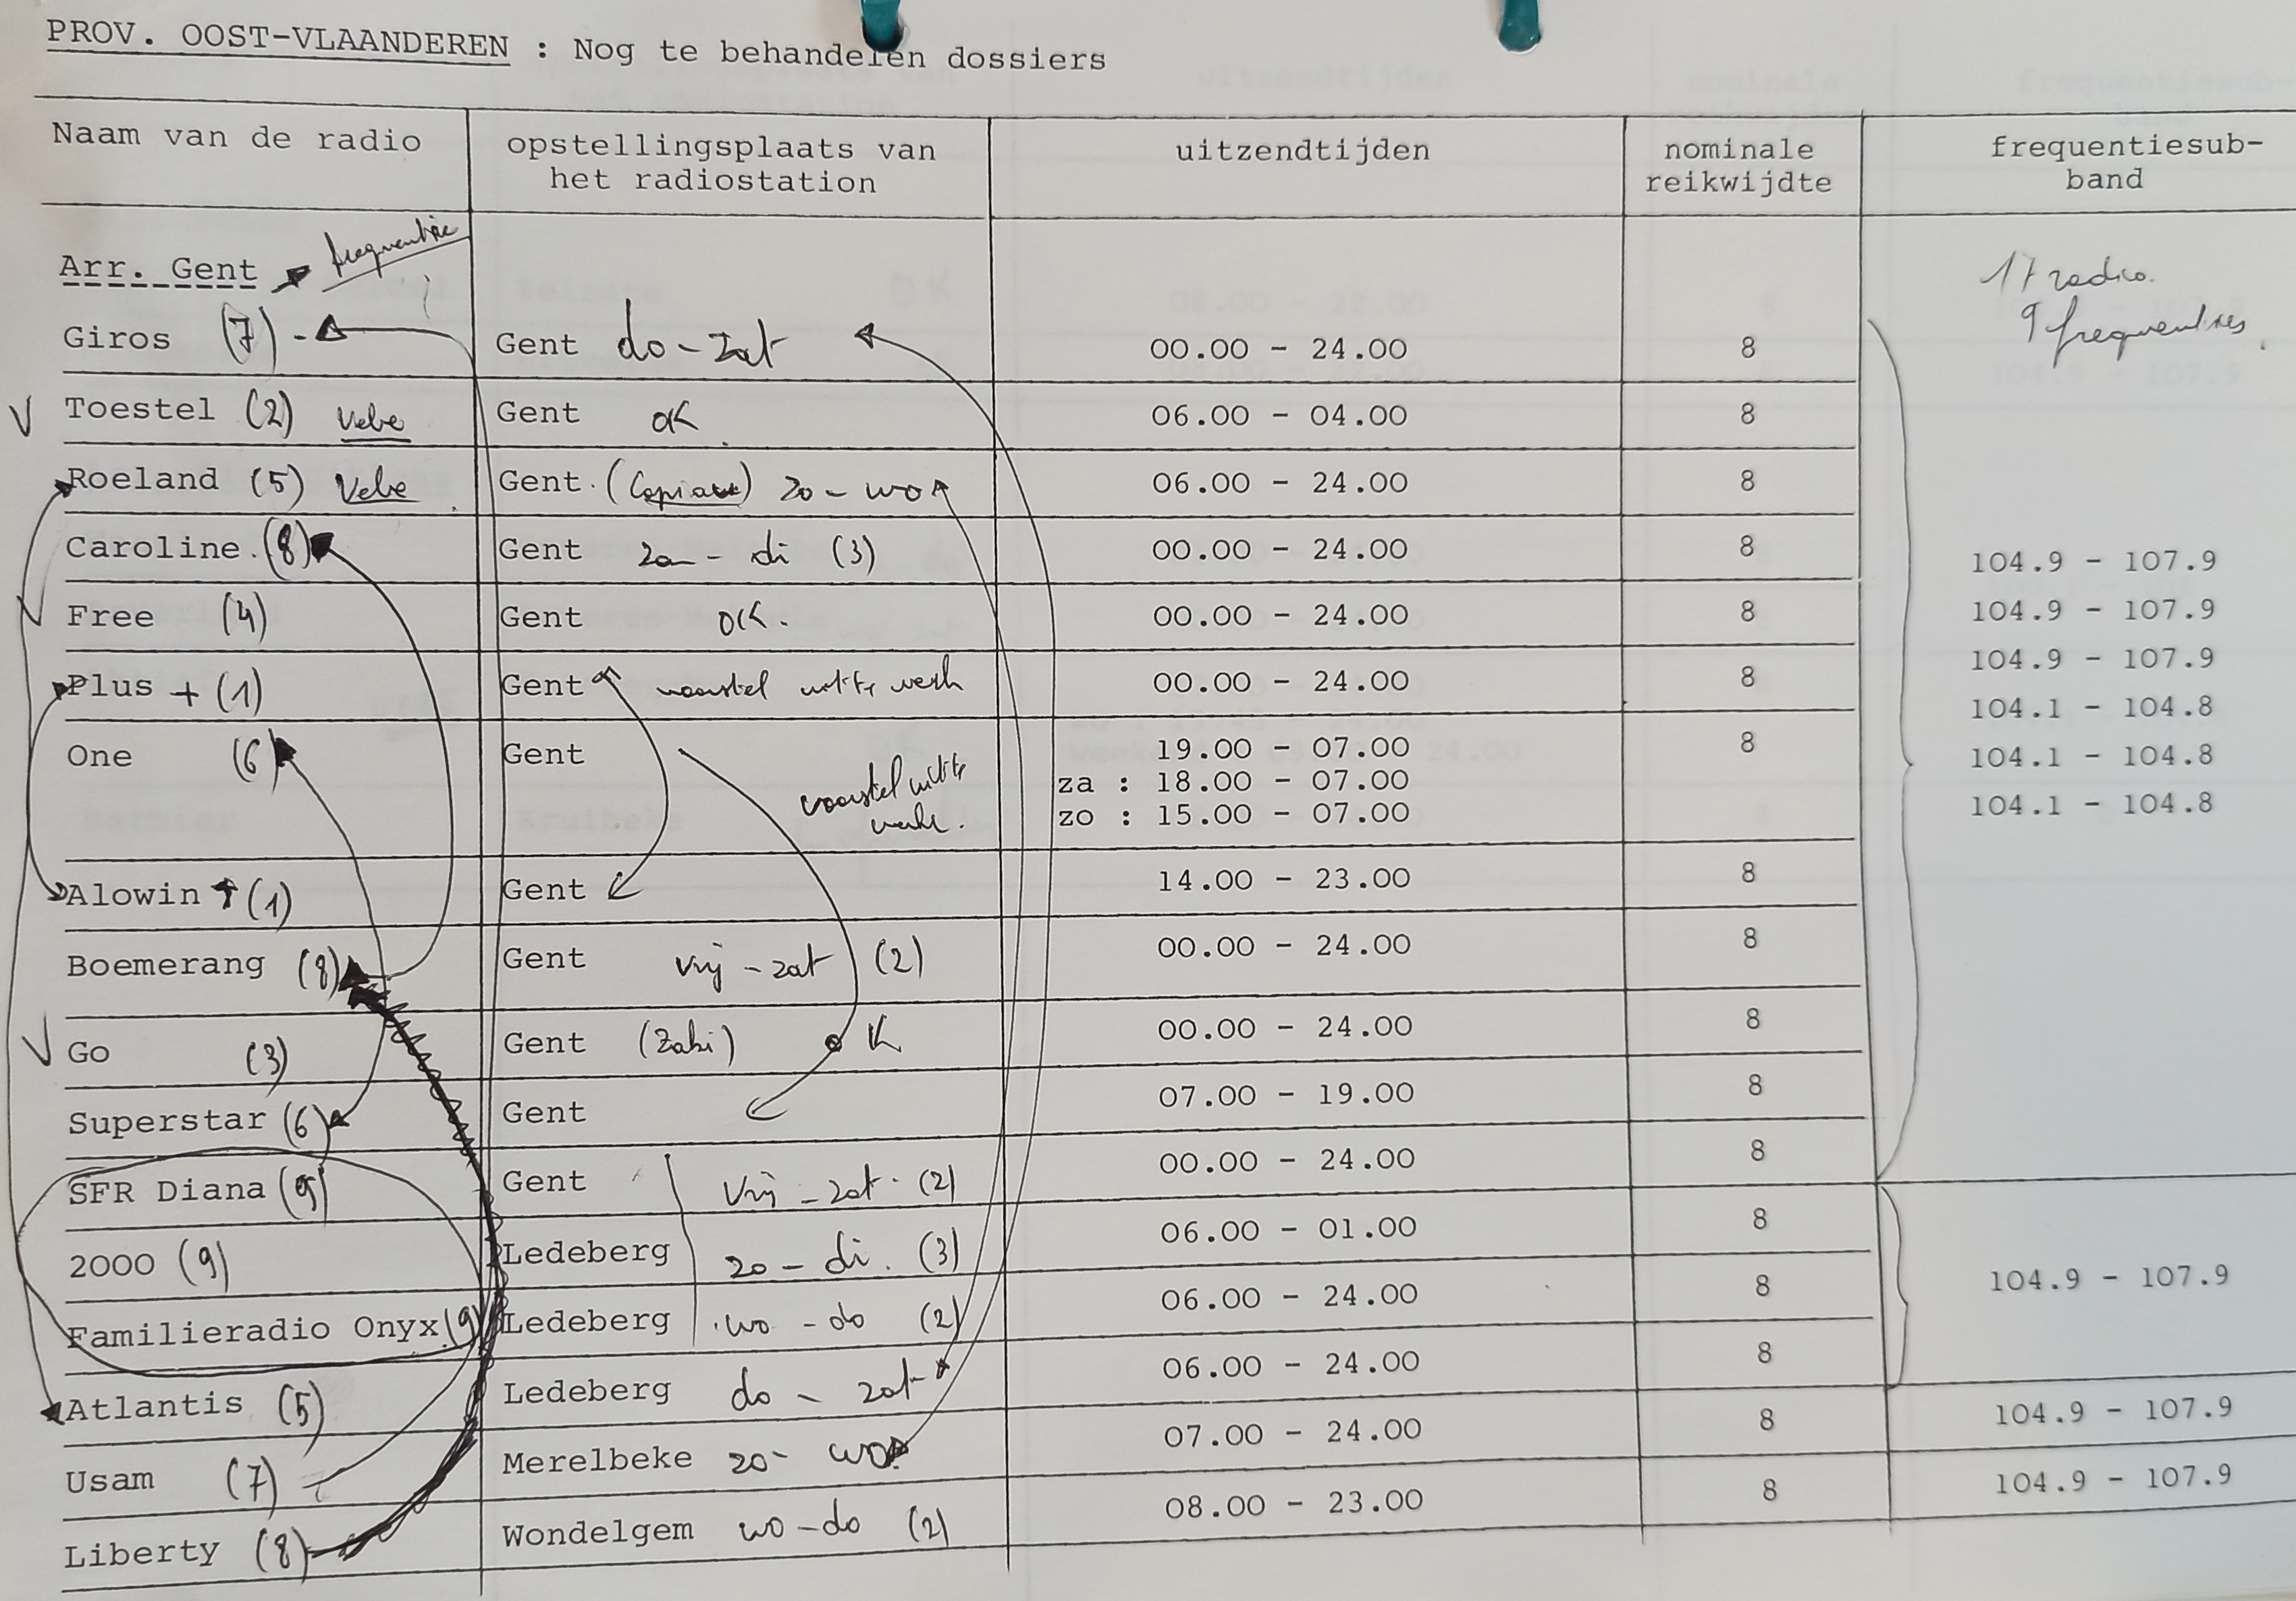 PROV. OOST-VLAANDEREN : Nog te behandelen dossiers
Naam van de radio
opstellingsplaats van
het radiostation
uitzendtijden
nominale
reikwijdte
frequentiesub-
band
Arr. Gent frequentie
17 radio.
9 frequenties.
Giros (7) Gent do - zat 00.00 - 24.00 8
Toestel (2) Vebe Gent OK 06.00 - 04.00 8
Roeland (5) Vebe Gent zo - wo 06.00 - 24.00 8
Caroline (8) Gent zo - di (3) 00.00 - 24.00 8 104.9 - 107.9
Free (4) Gent OK. 00.00 - 24.00 8 104.9 - 107.9
104.9 - 107.9
Plus + (1) Gent voorstel 00.00 - 24.00 8 104.1 - 104.8
One (6) Gent voorstel 19.00 - 07.00 8 104.1 - 104.8
za : 18.00 - 07.00
zo : 15.00 - 07.00 104.1 - 104.8
Alowin + (1) Gent 14.00 - 23.00 8
Boemerang (8) Gent vrij - zat (2) 00.00 - 24.00 8
Go (3) Gent OK 00.00 - 24.00 8
Superstar (6) Gent 07.00 - 19.00 8
SFR Diana (9) Gent vrij - zat. (2) 00.00 - 24.00 8
2000 (9) Ledeberg zo - di. (3) 06.00 - 01.00 8
Familieradio Onyx (9) Ledeberg wo - do (2) 06.00 - 24.00 8 104.9 - 107.9
Atlantis (5) Ledeberg do - zat 06.00 - 24.00 8
Usam (7) Merelbeke zo - wo 07.00 - 24.00 8 104.9 - 107.9
Liberty (8) Wondelgem wo - do (2) 08.00 - 23.00 8 104.9 - 107.9